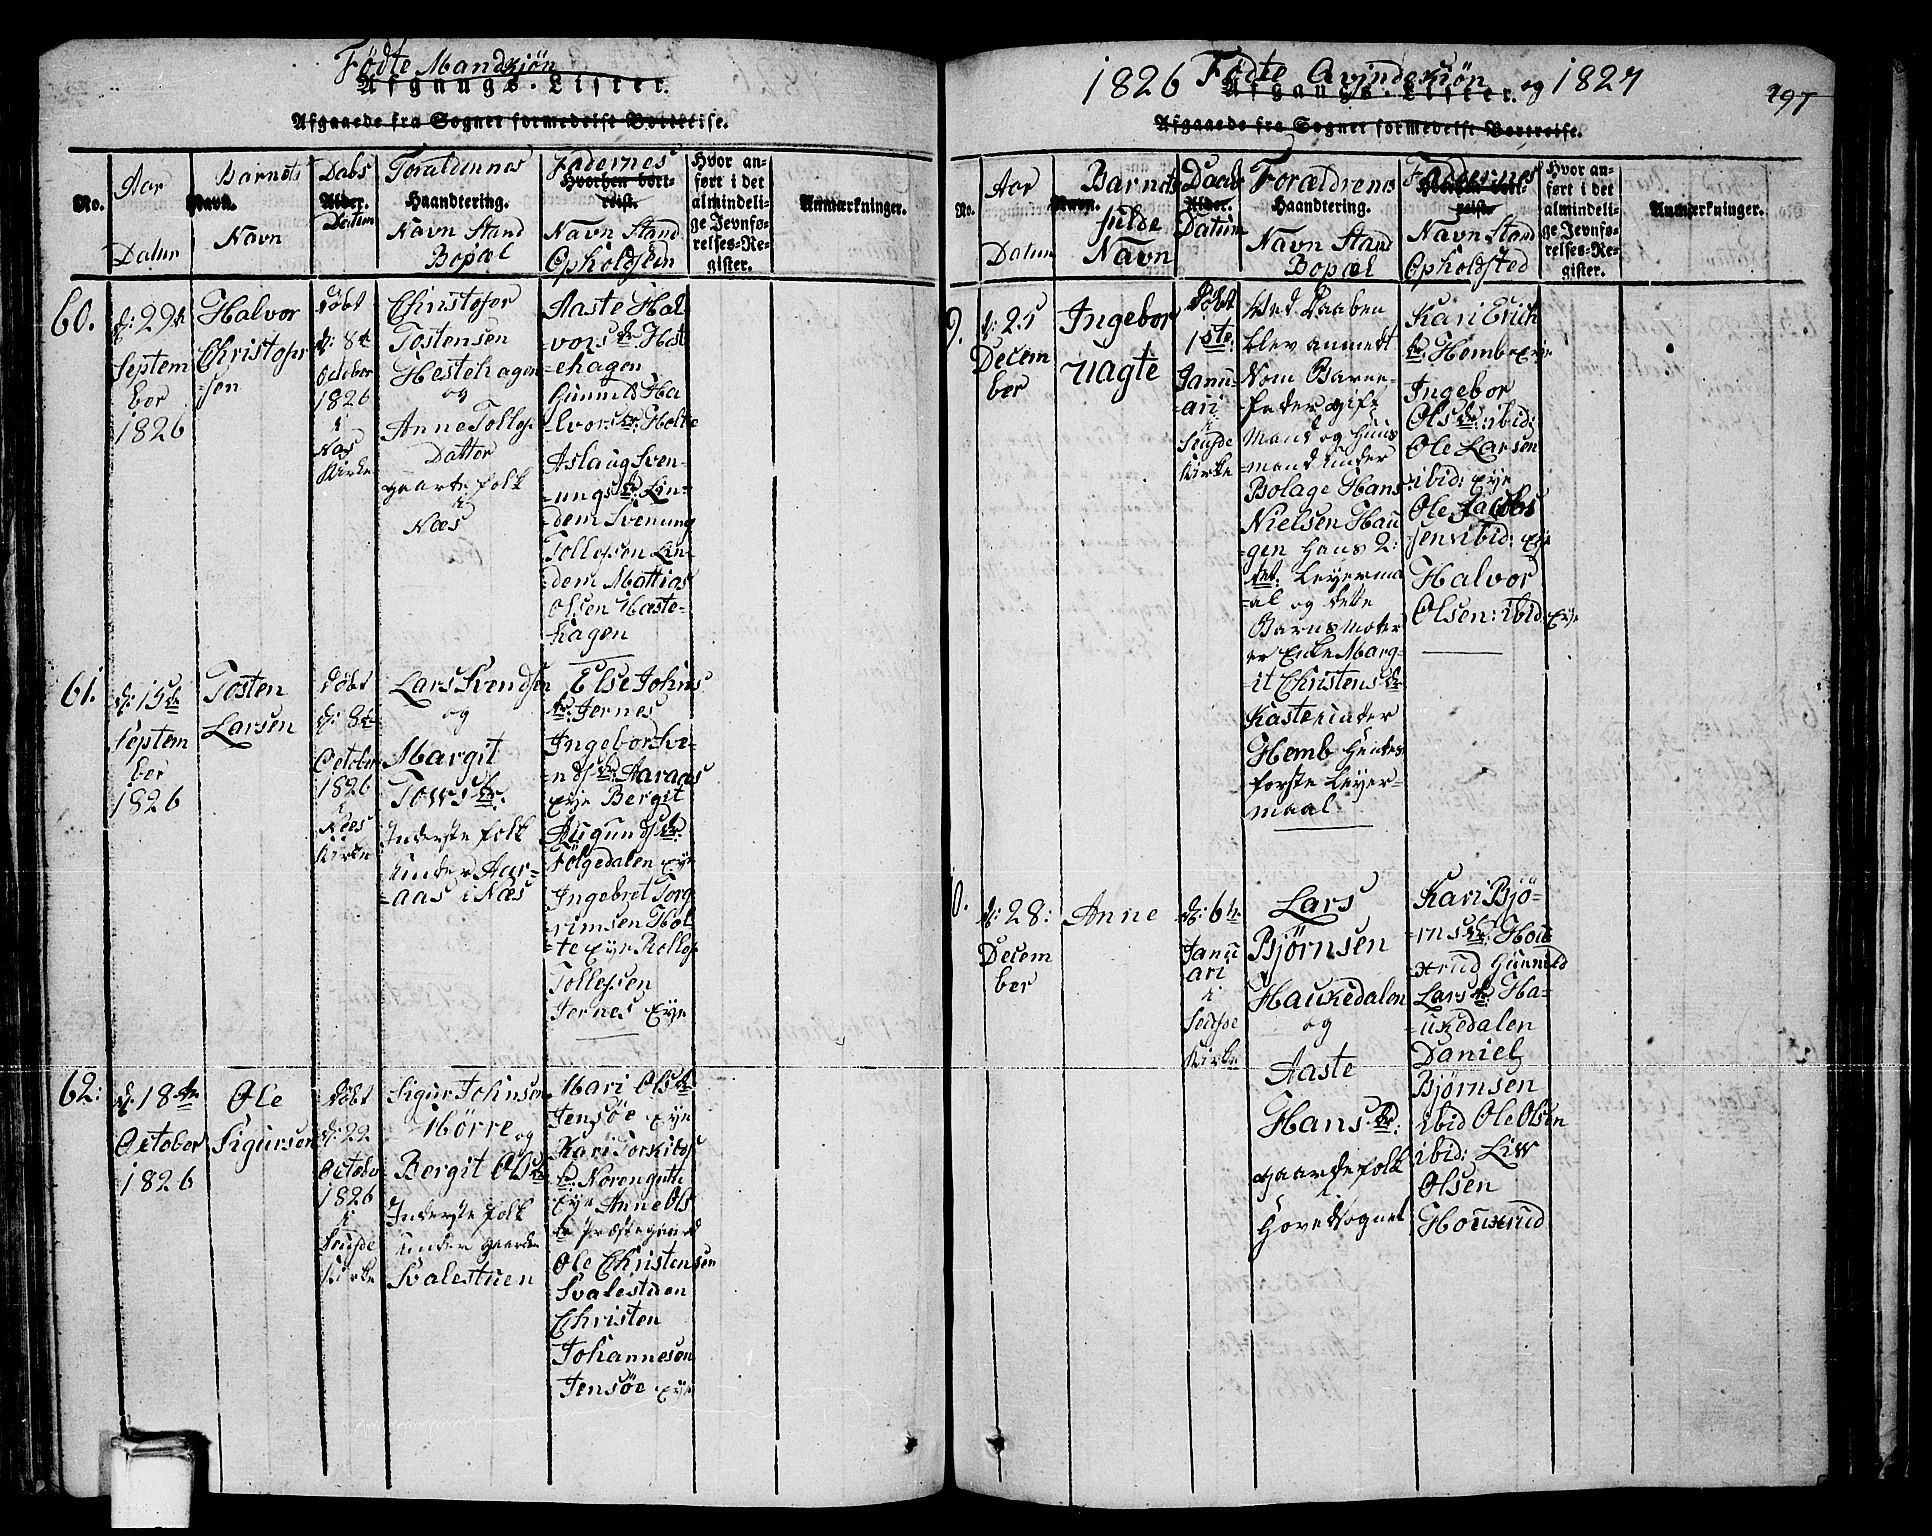 Fødte Mandkjøn
Afgangs-Lister.
Afgaaede fra Sognet formedelst Bortreise.
No.
Aar
Datum
Barnets
Navn.
Navn
Dabs
Alder.
Datum
Foræld​rennes
Haandtering.
Navn Stand
Bopæl
Fadernes
Hvorhen bort-
reist.
Navn Stand
Opholdsted
Hvor an-
ført i det
almindeli-
ge Jevnfø-
relses-Re-
gister.
Anmærkninger.
60.
d: 29de
Septem
ber
1826
Halvor
Christofer
=sen
Døbt
d: 8de
October
1826
i
Næs
Kirke
Christofer
Tostensen
Hestehagen
og
Anne Tollefs
Datter
gaardefolk
i
Næs
Aaste Hal
vorsdr: Hest
ehagen
Gunnild Ha
lvorsdr: Holte
Aslaug Sven-
ungsdr: Lin-
dem Svenung
Tollefsen Lin-
dem Mattias
Olsen Heste-
hagen
61.
d: 15de
Septem
ber
1826
Tosten
Larsen
Døbt
d: 8de
October
1826
i
Næs
Kirke
Lars Svendsen
og
Margit
Towsdr.
Inderstefolk
under Aar-
=aas i Næs
Else Johns
dr: Jernes
Ingebor Sve-
ndsdr: Aaraas
Eye Bergit
Augundsdr:
Følgedalen Eye
Ingebret Torg
rimsen Hol-
te Eye Rollef
Tollefsen
Jernes Eye
62:
d: 18de
October
1826
Ole
Sigursen
Døbt
d: 22
October
1826
i
Soufde
Kirke
Sigur Johnsen
Mørre og
Bergit Olsdr
Inderstefolk
under gaarden
Svalestuen
Mari Olsdr
Jensøe Eye
Kari Torkilds
dr: Norenguth
Eye Anne Ols
dr Præstegaard
Ole Christensen
Svalestuen
Christen
Johannesen
Jensøe Eye
1826 Fødte Qvindekjøn og 1827
297
Afgangs-Lister.
Afgaaede fra Sognet formedelst Bortreise.
No.
Aar
Datum
Barnets
Navn.
fulde
Navn
Daab
Alder.
Datum
Forældrenes
Haandtering.
Navn Stand
Bopæl
Faddernes
Hvorhen bort-
reist.
Navn Stand
Opholdsted
Hvor an-
ført i det
almindeli-
ge Jevnfø-
relses-Re-
gister.
Anmærkninger.
9.
d: 25
Decem
ber
Ingebor
uægte
Døbt
1ste
Janu
=ari
i
Soufde
Kirke
Ved Daaben
blev anmeldt
som Barne-
fader gift
Mand og Huus
mand under
Bolage Hans
Nielsen Hau
gen Hans 2:
det: Leyerma
al og dette
Barns Moder
er Enke Marg-
it Christensdr
Kaste under
Hemb Hendes
første Leyer-
maal
Kari Erich
dr: Hemb Eye
Ingebor
Olsdr: ibid:
Ole Larsen
ibid: Eye
Ole Jacob
sen ibid: Eye
Halvor
Olsen: ibid Eye
10.
d: 28:
Decem
ber
Anne
d: 6te
Janu
ari
i
Soufde
Kirke
Lars
Bjørnsen
Haukedalen
og
Aaste
Hansdr:
gaardefolk
Hovedsognet
Kari Bjø-
rnsdr: Hou
xrud Gunnild
Larsdr Ha-
ukedalen
Daniel
Bjørnsen
ibid Ole Olsen
ibid: Liw
Olsen
Houxrud